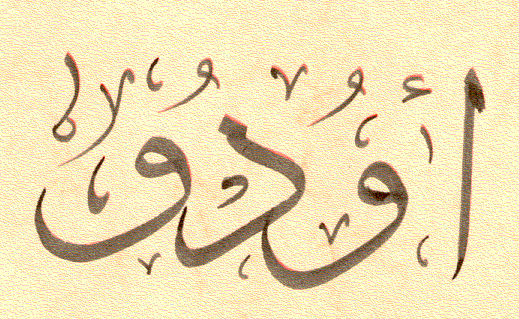 أودو